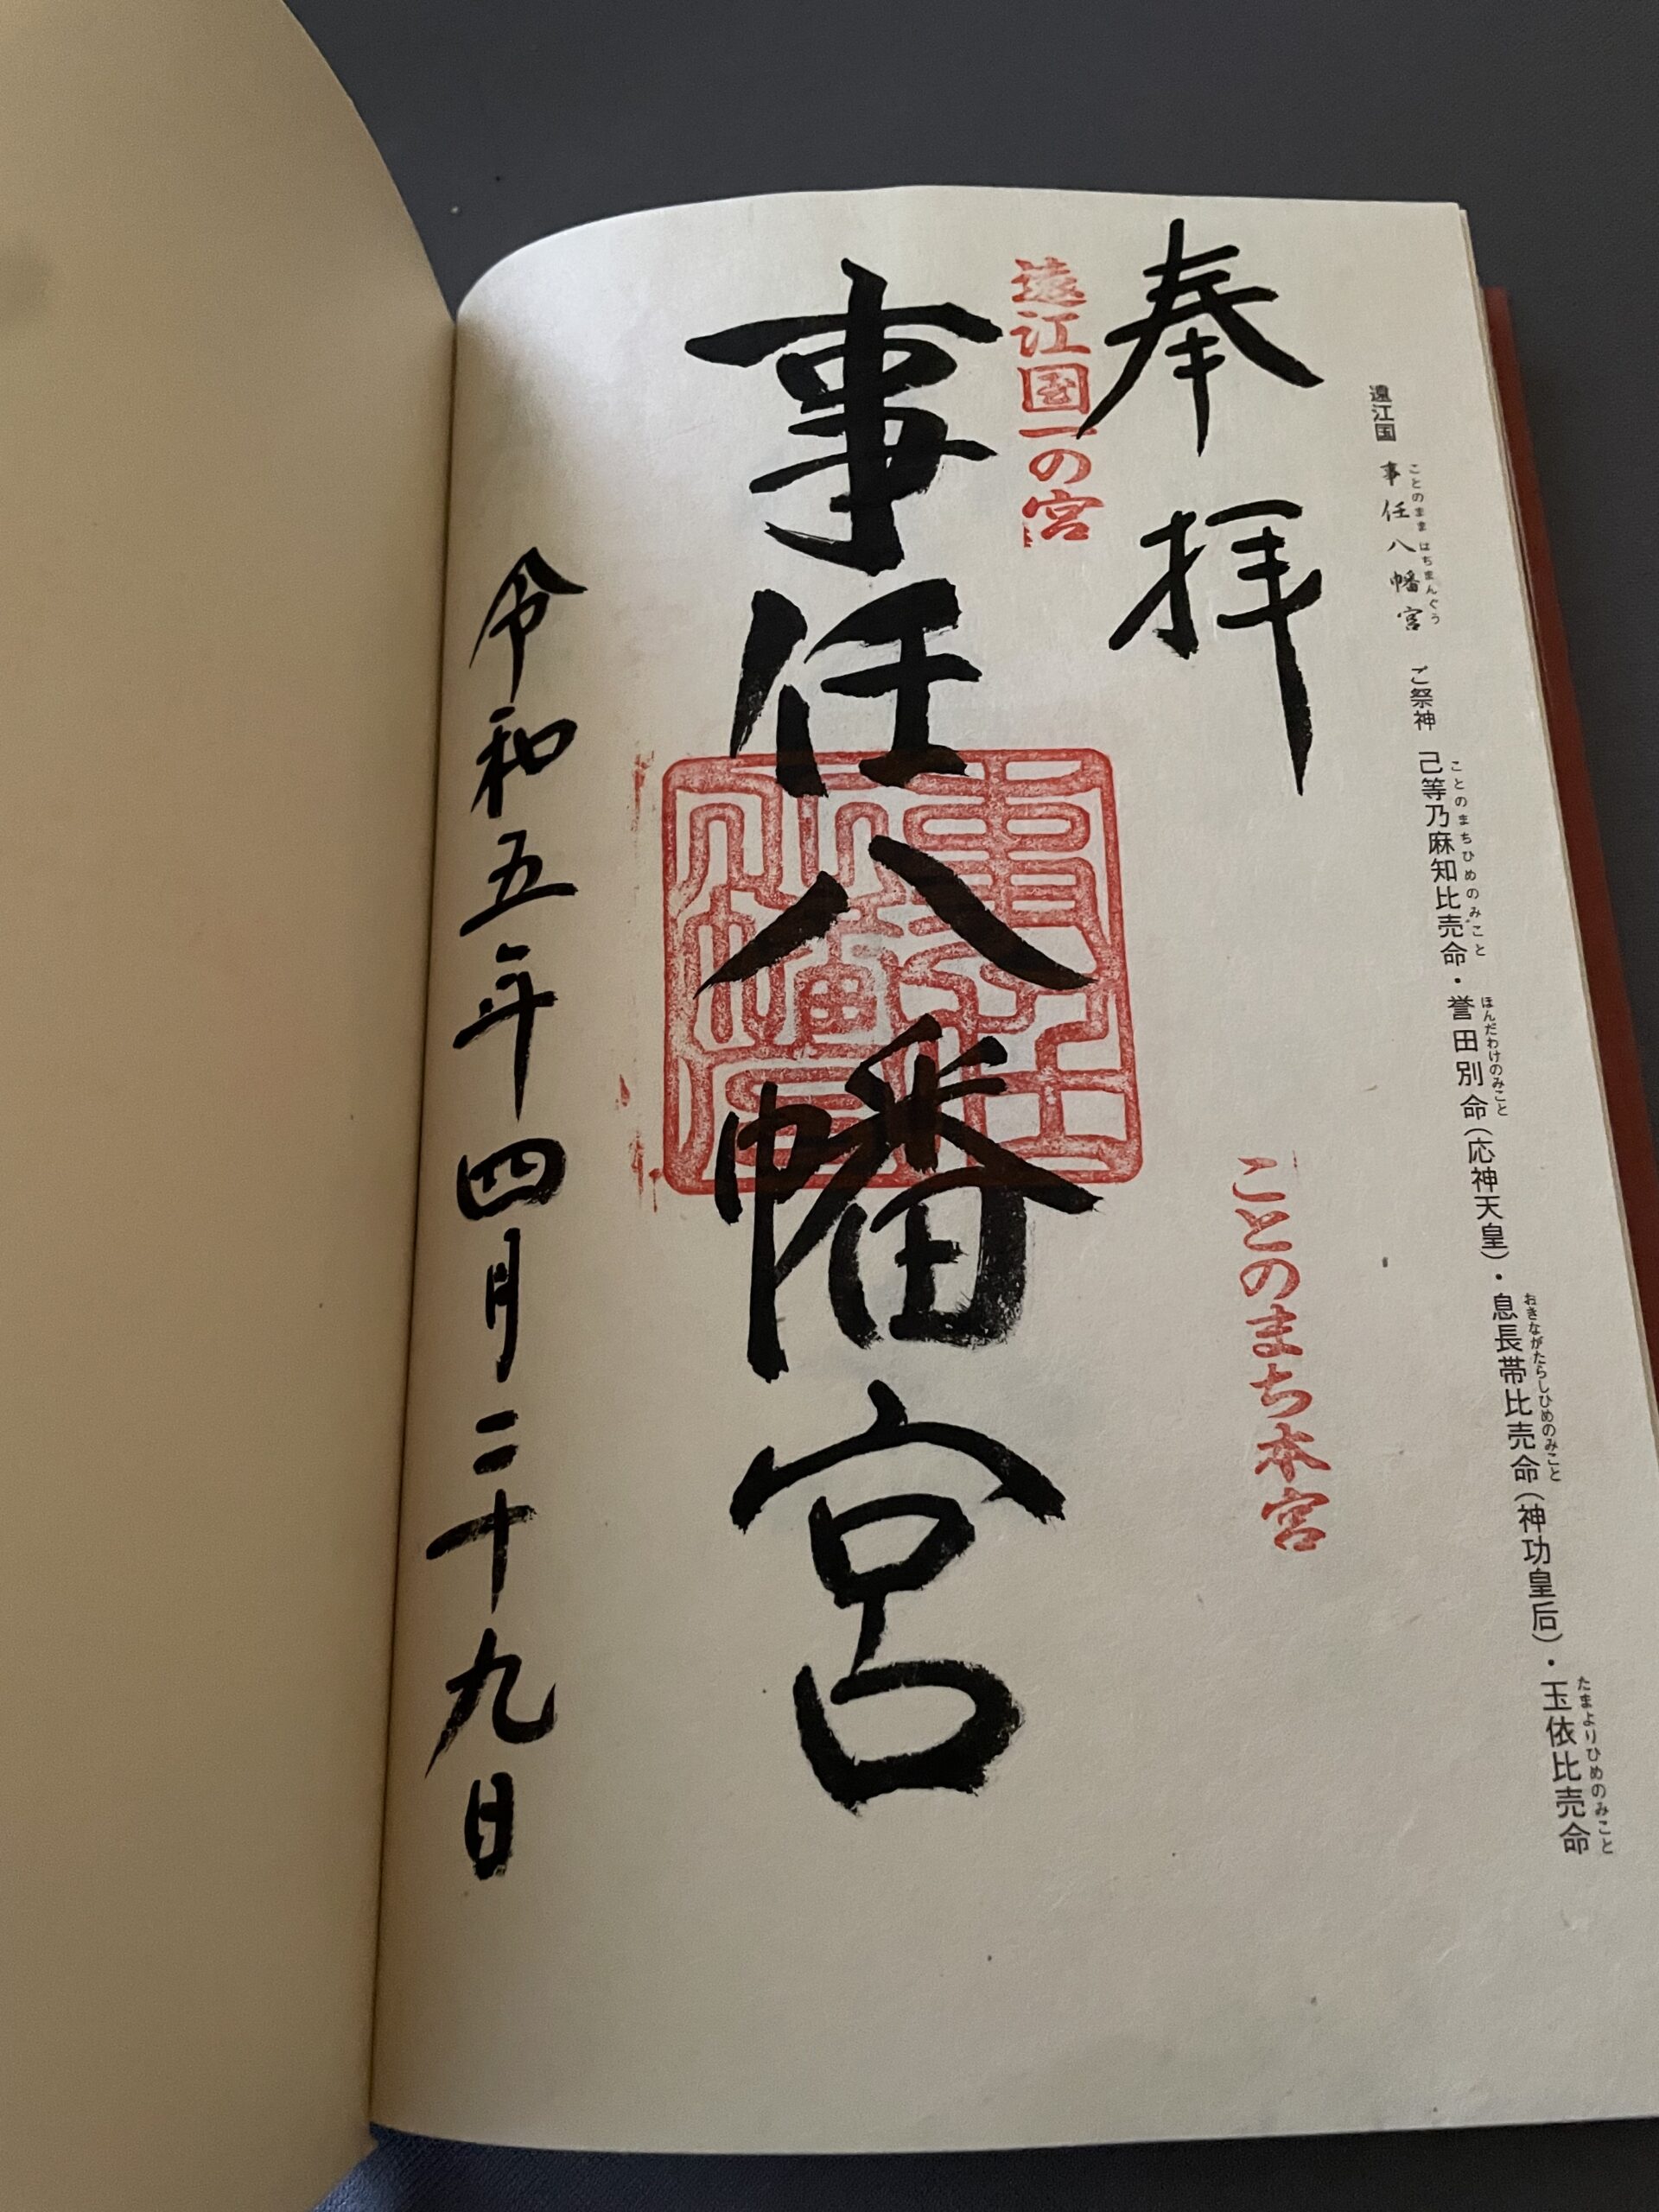 遠江国 事任八幡宮 ご祭神 己等乃麻知比売命・誉田別命(応神天皇)・息長帯比売命(神功皇后)・玉依比売命
ことのまま はちまんぐう ことのまちひめのみこと ほんだわけのみこと おきながたらしひめのみこと たまよりひめのみこと
奉拝
ことのまち本宮
遠江国一の宮
事任八幡宮
事任
八幡宮
令和五年四月二十九日